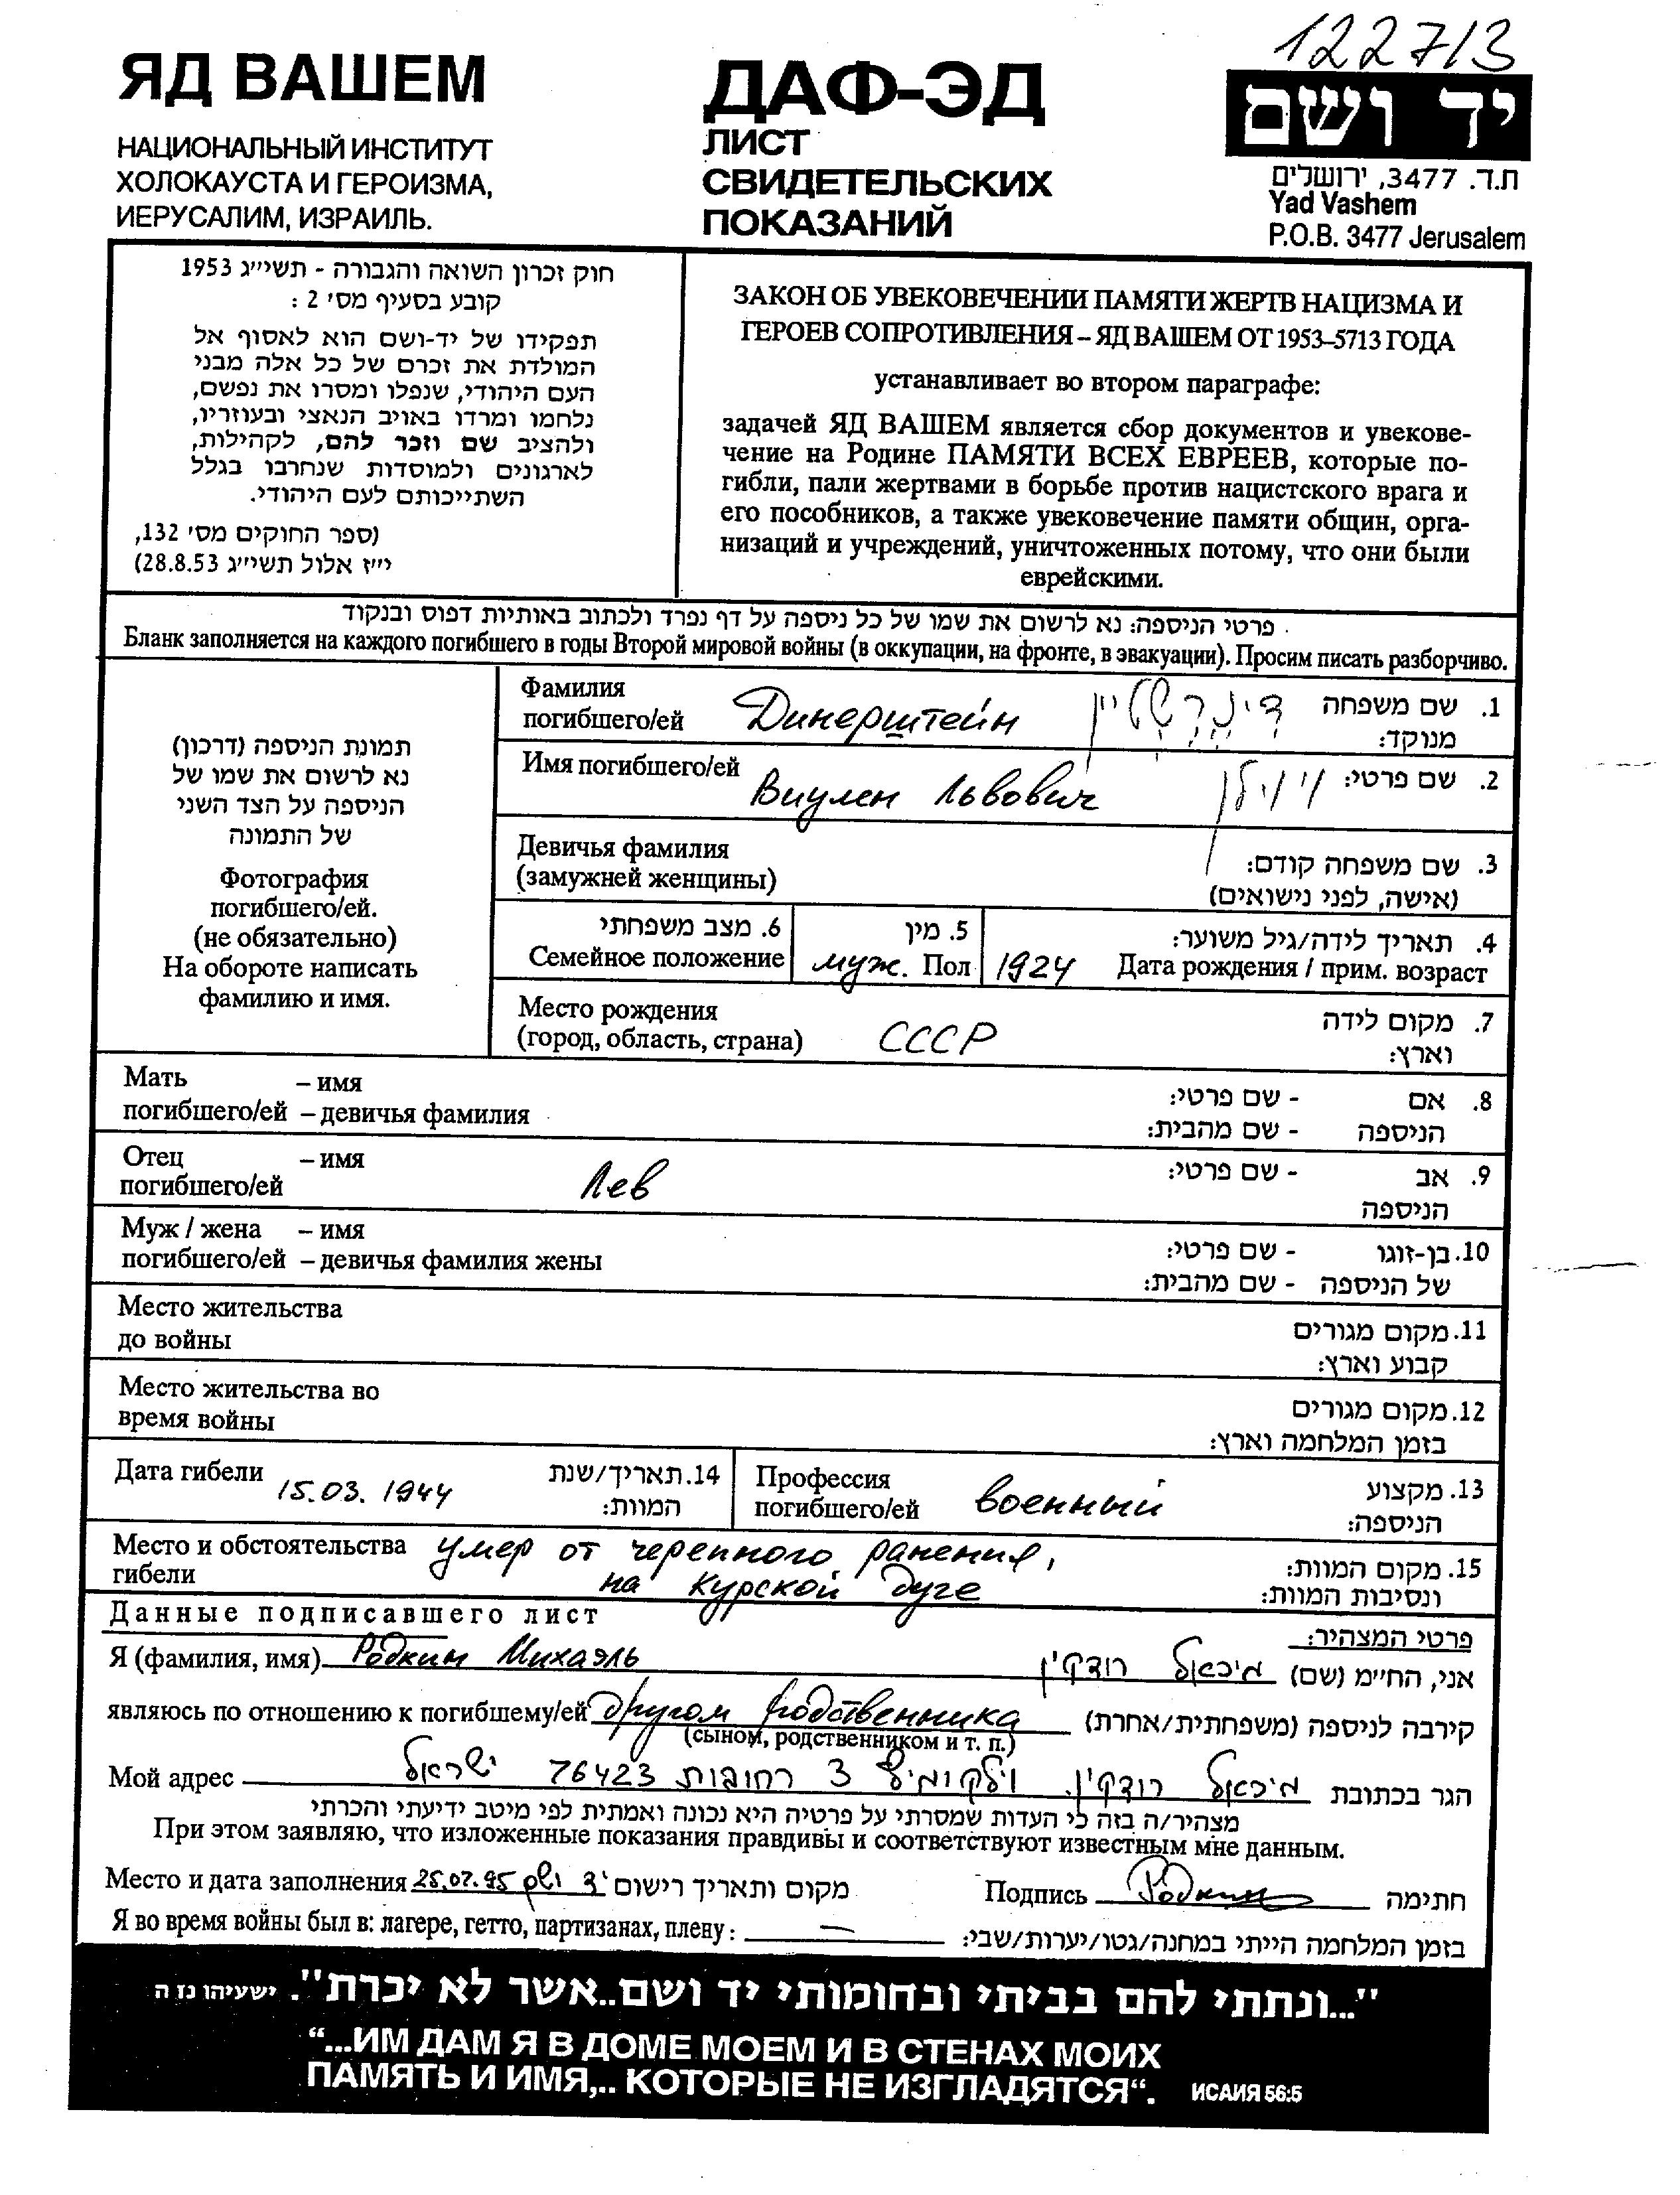 122713
ЯД ВАШЕМ
НАЦИОНАЛЬНЫЙ ИНСТИТУТ
ХОЛОКАУСТА И ГЕРОИЗМА,
ИЕРУСАЛИМ, ИЗРАИЛЬ.
ДАФ-ЭД
ЛИСТ
СВИДЕТЕЛЬСКИХ
ПОКАЗАНИЙ
יד ושם
ת.ד. 3477, ירושלים
Yad Vashem
P.O.B. 3477 Jerusalem
חוק זכרון השואה והגבורה - תשי״ג 1953
קובע בסעיף מס׳ 2 :
תפקידו של יד-ושם הוא לאסוף אל
המולדת את זכרם של כל אלה מבני
העם היהודי, שנפלו ומסרו את נפשם,
נלחמו ומרדו באויב הנאצי ובעוזריו,
ולהציב שם וזכר להם, לקהילות,
לארגונים ולמוסדות שנחרבו בגלל
השתייכותם לעם היהודי.
(ספר החוקים מס׳ 132,
י״ז אלול תשי״ג 28.8.53)
ЗАКОН ОБ УВЕКОВЕЧЕНИИ ПАМЯТИ ЖЕРТВ НАЦИЗМА И
ГЕРОЕВ СОПРОТИВЛЕНИЯ – ЯД ВАШЕМ ОТ 1953–5713 ГОДА
устанавливает во втором параграфе:
задачей ЯД ВАШЕМ является сбор документов и увекове-
чение на Родине ПАМЯТИ ВСЕХ ЕВРЕЕВ, которые по-
гибли, пали жертвами в борьбе против нацистского врага и
его пособников, а также увековечение памяти общин, орга-
низаций и учреждений, уничтоженных потому, что они были
еврейскими.
פרטי הניספה: נא לרשום את שמו של כל ניספה על דף נפרד ולכתוב באותיות דפוס ובנקוד
Бланк заполняется на каждого погибшего в годы Второй мировой войны (в оккупации, на фронте, в эвакуации). Просим писать разборчиво.
תמונת הניספה (דרכון)
נא לרשום את שמו של
הניספה על הצד השני
של התמונה
Фотография
погибшего/ей.
(не обязательно)
На обороте написать
фамилию и имя.
Фамилия
погибшего/ей Динерштейн דינרשטיין
1. שם משפחה
מנוקד:
Имя погибшего/ей
Виулен Львович ויולן
2. שם פרטי:
Девичья фамилия
(замужней женщины)
3. שם משפחה קודם:
(אישה, לפני נישואים)
6. מצב משפחתי
Семейное положение
5. מין
муж. Пол
4. תאריך לידה/גיל משוער:
1924 Дата рождения / прим. возраст
Место рождения
(город, область, страна) СССР
7. מקום לידה
וארץ:
Мать – имя
погибшего/ей – девичья фамилия
8. אם - שם פרטי:
הניספה - שם מהבית:
Отец – имя
погибшего/ей Лев
9. אב - שם פרטי:
הניספה
Муж / жена – имя
погибшего/ей – девичья фамилия жены
10. בן-זוגו - שם פרטי:
של הניספה - שם מהבית:
Место жительства
до войны
11. מקום מגורים
קבוע וארץ:
Место жительства во
время войны
12. מקום מגורים
בזמן המלחמה וארץ:
Дата гибели 15.03.1944
14. תאריך/שנת
המוות:
Профессия
погибшего/ей военный
13. מקצוע
הניספה:
Место и обстоятельства умер от черепного ранения,
гибели на Курской дуге
15. מקום המוות:
ונסיבות המוות:
Данные подписавшего лист
פרטי המצהיר:
Я (фамилия, имя) Родкин Михаэль
אני, החי״מ (שם) מיכאל רודקין
являюсь по отношению к погибшему/ей другом родственника
קירבה לניספה (משפחתית/אחרת)
(сыном, родственником и т. п.)
Мой адрес
הגר בכתובת מיכאל רודקין. וילקומיץ 3 רחובות 76423 ישראל
מצהיר/ה בזה כי העדות שמסרתי על פרטיה היא נכונה ואמתית לפי מיטב ידיעתי והכרתי
При этом заявляю, что изложенные показания правдивы и соответствуют известным мне данным.
Место и дата заполнения 25.07.95 יד ושם מקום ותאריך רישום
Подпись Родкин חתימה
Я во время войны был в: лагере, гетто, партизанах, плену: —
בזמן המלחמה הייתי במחנה/גטו/יערות/שבי:
"...ונתתי להם בביתי ובחומותי יד ושם..אשר לא יכרת". ישעיהו נז ה
“...ИМ ДАМ Я В ДОМЕ МОЕМ И В СТЕНАХ МОИХ
ПАМЯТЬ И ИМЯ,.. КОТОРЫЕ НЕ ИЗГЛАДЯТСЯ“. ИСАИЯ 56:5